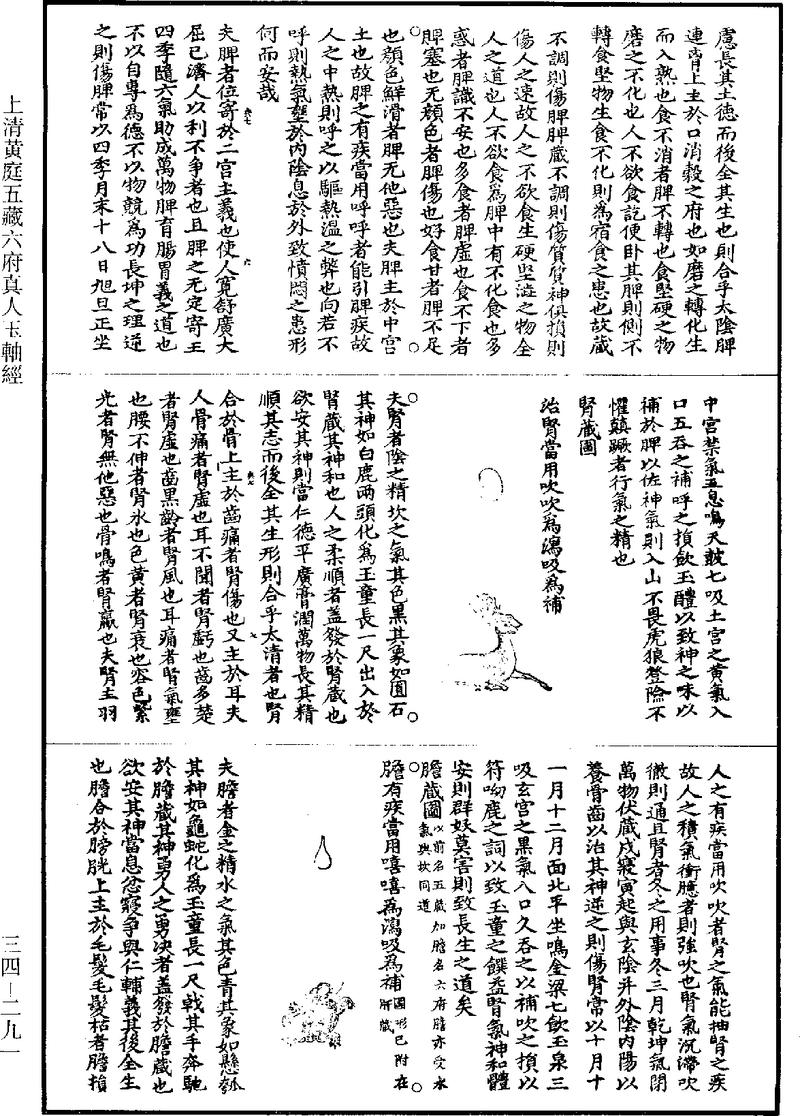 慮長其土德而後全其生也則合乎太陰脾
連胷上主於口消穀之府也如磨之轉化生
而入熟也食不消者脾不轉也食堅硬之物
磨之不化也人不欲食訖便卧其脾則側不
轉食堅物生食不化則為宿食之患也故藏
不調則傷脾脾藏不調則傷質質神俱損則
傷人之速故人之不欲食生硬堅澁之物全
人之道也人不欲食為脾中有不化食也多
惑者脾識不安也多食者脾虛也食不下者
脾塞也无顏色者脾傷也好食甘者脾不足
也顏色鮮滑者脾无他惡也夫脾主於中宮
土也故脾之有疾當用呼呼者能引脾疾故
人之中熱則呼之以驅熱溫之弊也向若不
呼則熱氣壅於內陰息於外致憤悶之患形
何而安哉
夫脾者位寄於二宮主義也使人寬舒廣大
屈己濟人以利不爭者也且脾之无定寄王
四季隨六氣助成萬物脾育腸胃義之道也
不以自專為德不以物競為功長坤之理逆
之則傷脾常以四季月末十八日旭旦正坐
中宮禁氣五息鳴天鼓七吸土宮之黃氣入
口五吞之補呼之損飲玉醴以致神之味以
補於脾以佐神氣則入山不畏虎狼登險不
懼顛蹶者行氣之精也
腎藏圖
治腎當用吹吹為瀉吸為補
夫腎者陰之精坎之氣其色黑其象如圓石
其神如白鹿兩頭化為玉童長一尺出入於
腎藏其神和也人之柔順者蓋發於腎藏也
欲安其神則當仁德平廣膏潤萬物長其精
順其志而後全其生形則合乎太清者也腎
合於骨上主於齒痛者腎傷也又主於耳夫
人骨痛者腎虛也耳不聞者腎虧也齒多楚
者腎虛也齒黑齡者腎風也耳痛者腎氣壅
也腰不伸者腎氷也色黃者腎衰也容色紫
光者腎無他惡也骨鳴者腎羸也夫腎主羽
人之有疾當用吹吹者腎之氣能抽腎之疾
故人之積氣衝臆者則強吹也腎氣沉滯吹
徹則通且腎者冬之用事冬三月乾坤氣閉
萬物伏藏戌寢寅起與玄陰并外陰內陽以
養骨齒以治其神逆之則傷腎常以十月十
一月十二月面北平坐鳴金梁七飲玉泉三
吸玄宮之黑氣入口久吞之以補吹之損以
符呦鹿之詞以致玉童之饌益腎氣神和體
安則群妖莫害則致長生之道矣
膽藏圖以前名五藏加膽名六府膽亦受水氣與坎同道
膽有疾當用嘻嘻為瀉吸為補圖形已附在肝藏
夫膽者金之精水之氣其色青其象如懸瓠
其神如龜蛇化為玉童長一尺戟其手奔馳
於膽藏其神勇人之勇決者蓋發於膽藏也
欲安其神當息忿寢爭與仁輔義其後全生
也膽合於膀胱上主於毛髮毛髮枯者膽損
上清黃庭五藏六府真人玉軸經
三四—二九一